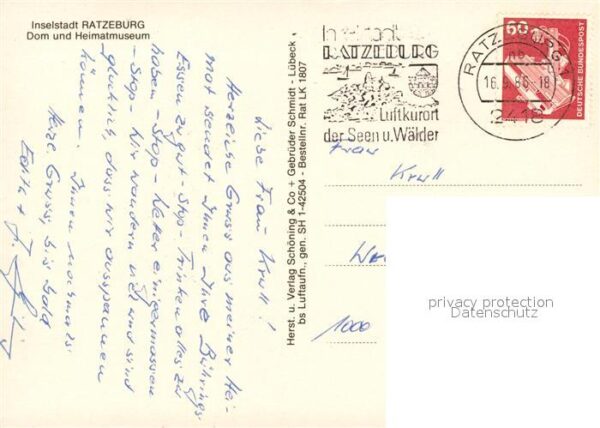 Inselstadt RATZEBURG
Dom und Heimatmuseum
Liebe Frau Krull!
Herzliche Grüsse aus meiner Hei-
mat sendet Ihnen Ihre
Essen zu gut - Stop - Trinken alles zu
haben - Stop - Wetter einigermassen
- Stop - Wir wandern viel und sind
glücklich, dass wir ausspannen
können. Ihnen nochmals
Gruss, bis bald
Herst. u. Verlag Schöning & Co + Gebrüder Schmidt - Lübeck
bs Luftaufn., gen. SH 1-42504 - Bestellnr. Rat LK 1807
Inselstadt
RATZEBURG
Luftkurort
der Seen u. Wälder
RATZEBURG 1
16.9.86-18
2418
60
DEUTSCHE BUNDESPOST
Frau
Krull
1000
privacy protection
Datenschutz